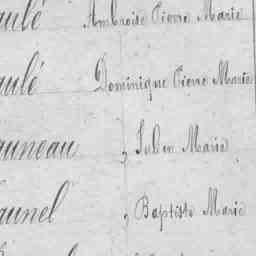 aulé Ambroise Pierre Marie
aulé Dominique Pierre Marie
auneau , Julien Marie
aunel , Baptiste Marie